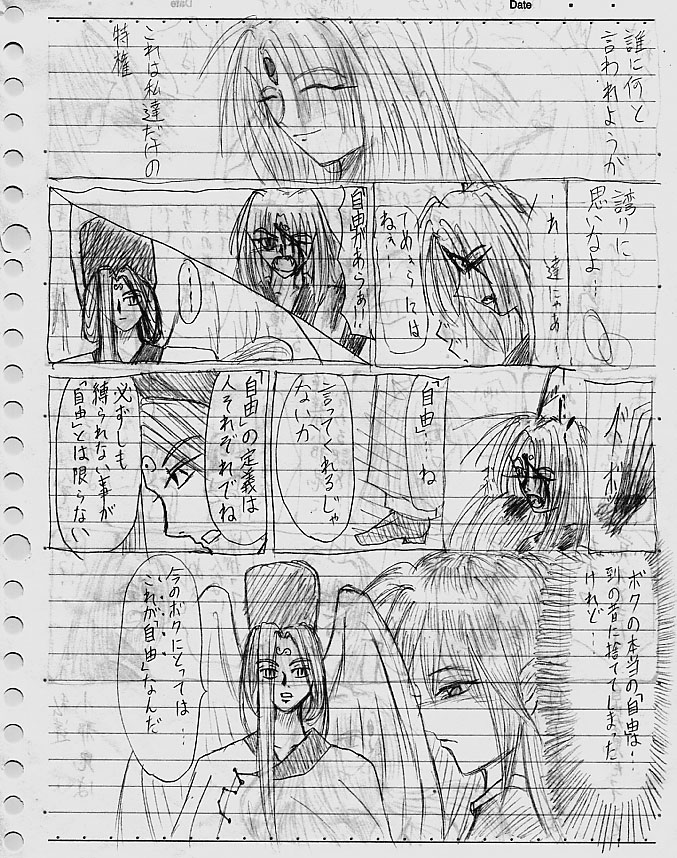 Date
誰に何と
言われようが
これは私達だけの
特権
誇りに
思いなよ…
てめぇらには
ねぇ…
「自由」があらぁ!!
…
「自由」…ね
言ってくれるじゃ
ないか
「自由」の定義は
人それぞれでね
必ずしも
縛られない事が
「自由」とは限らない
ボクの本当の「自由」は…
到の昔に捨ててしまった
けれど…
今のボクにとっては…
これが「自由」なんだ